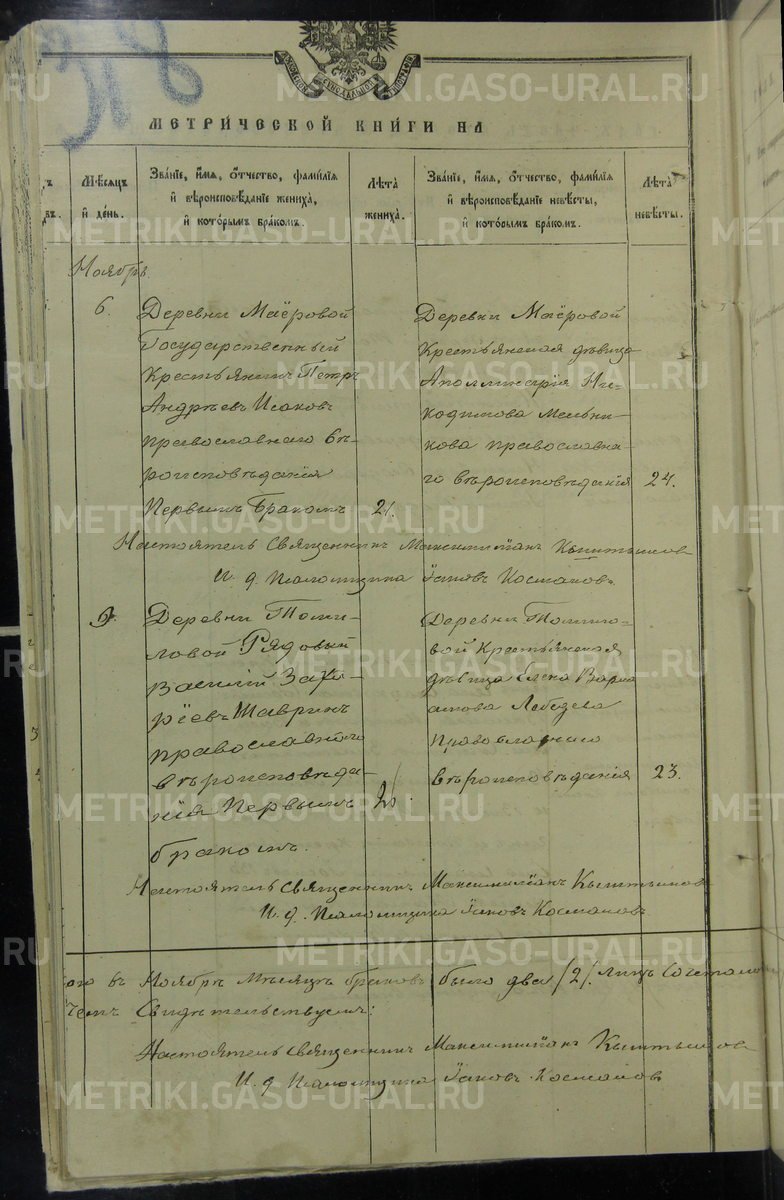 318
МЕТРИ́ЧЕСКОЙ КНИ́ГИ НА
Мѣсяцъ и де́нь.
Зва́нїе, и҆́мя, ѻ҆́тчество, фами́лїя и҆ вѣроисповѣ́данїе жениха̀, и҆ кото́рымъ бра́комъ.
Лѣ́та жениха̀.
Зва́нїе, и҆́мя, ѻ҆́тчество, фами́лїя и҆ вѣроисповѣ́данїе невѣ́сты, и҆ кото́рымъ бра́комъ.
Лѣ́та невѣ́сты.
Ноябрь.
6.
Деревни Маёровой
Государственный
Крестьянинъ Петръ
Андреевъ Исаковъ
православнаго вѣ-
роисповѣданія
Первымъ Бракомъ
21.
Деревни Маёровой
Крестьянская дѣвица
Аполлинарія Ни-
кодимова Мельни-
кова православна-
го вѣроисповѣданія
24.
Настоятель Священникъ Максимилїанъ
И. д. Псаломщика Іаковъ Космаковъ
Деревни Томи-
ловой Рядовый
Василій Заха-
рїевъ Шавринъ
православнаго
вѣроисповѣда-
нія Первымъ
бракомъ.
Деревни Томило-
вой Крестьянская
дѣвица Елена
Лебедева
Православнаго
вѣроисповѣданія
23.
Настоятель Священникъ Максимилїанъ
И. д. Псаломщика Іаковъ Космаковъ
Ноябрѣ Мѣсяцѣ браковъ было два /2/. лицъ
чемъ Свидѣтельствуемъ:
Настоятель Священникъ Максимилїанъ
И. д. Псаломщика Іаковъ Космаковъ
METRIKI.GASO-URAL.RU